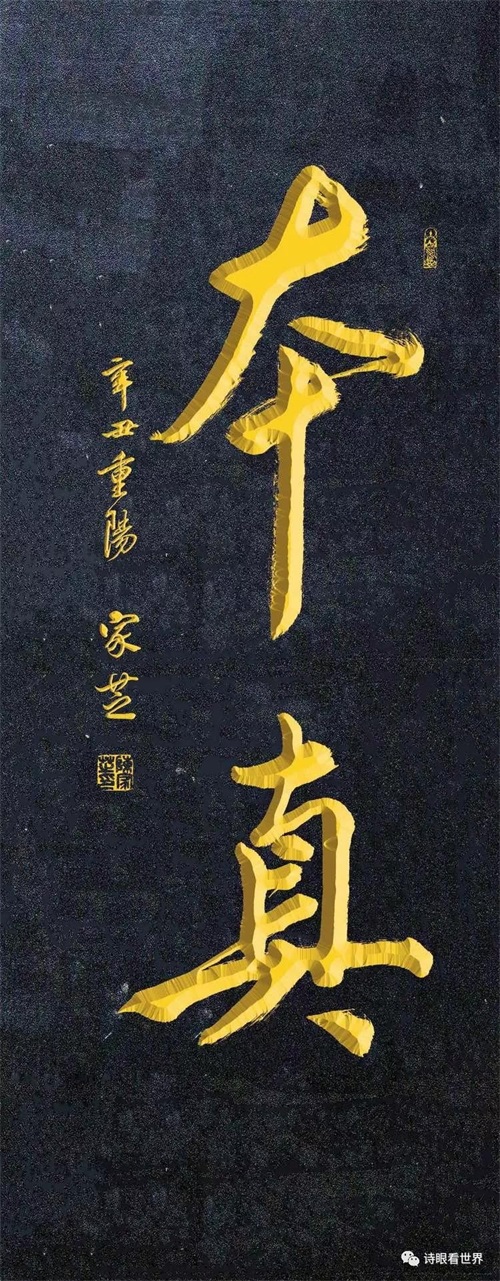 本真
辛丑重陽 家芝
诗眼看世界